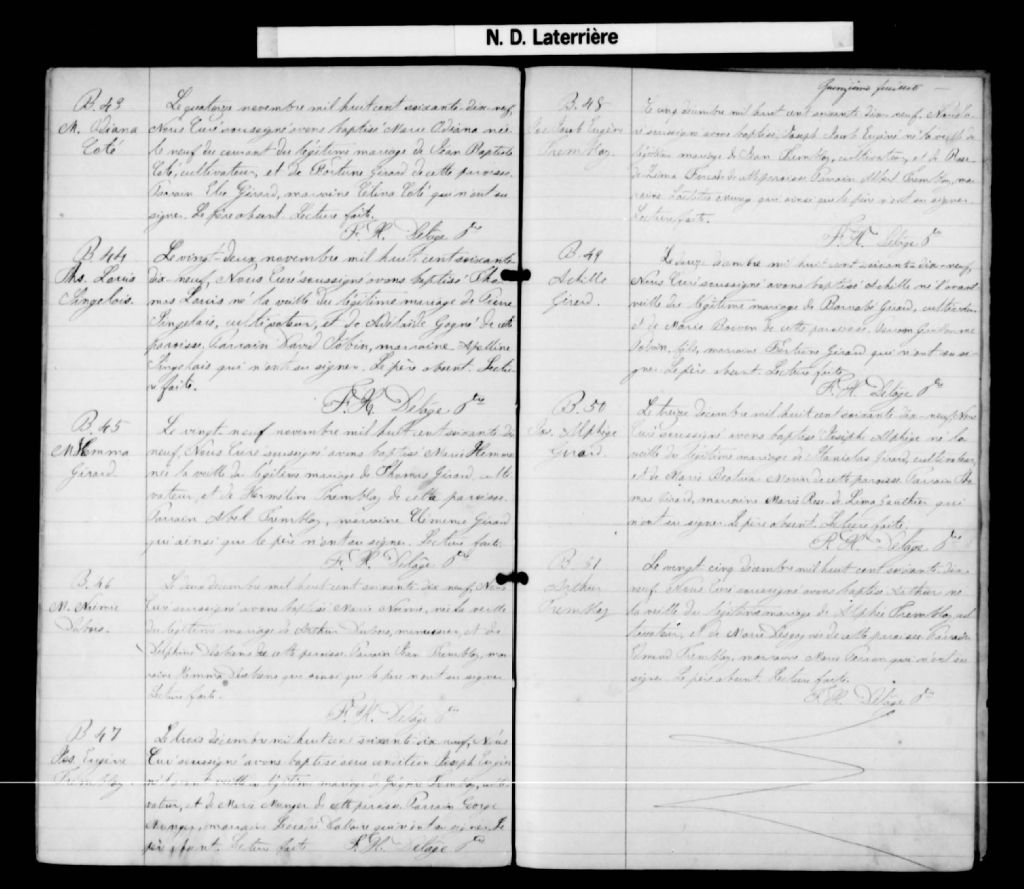 N. D. Laterrière
B. 43
M. Odiana
Coté
Le quatorze novembre mil huit cent soixante-dix-neuf,
Nous Curé soussigné avons baptisé Marie Odiana née
le neuf du courant du légitime mariage de Jean Baptiste
Coté, cultivateur, et de Fortune Girard de cette paroisse.
Parrain Elie Girard, marraine Célina Coté qui n'ont su
signer. Le père absent. Lecture faite.
F. X. Delâge Ptre
B. 44
Ths. Louis
Singelais
Le vingt-deux novembre mil huit cent soixante
dix-neuf, Nous Curé soussigné avons baptisé Tho
mas Louis né la veille du légitime mariage de Pierre
Singelais, cultivateur, et de Adélaïde Gagné de cette
paroisse. Parrain David Tobin, marraine Apolline
Singelais qui n'ont su signer. Le père absent. Lectu
re faite.
F. X. Delâge Ptre
B. 45
M. Hemma
Girard
Le vingt neuf novembre mil huit cent soixante dix
neuf, Nous Curé soussigné avons baptisé Marie Hemma
née la veille du légitime mariage de Thomas Girard, culti
vateur, et de Hermeline Tremblay de cette paroisse.
Parrain Abel Tremblay, marraine Girard
qui ainsi que le père n'ont su signer. Lecture faite.
F. X. Delâge Ptre
B. 46
M. Noémie
Dubois.
Le deux décembre mil huit cent soixante dix neuf, Nous
Curé soussigné avons baptisé Marie Noémie, née la veille
du légitime mariage de Arthur Dubois, menuisier, et de
Delphine Desbiens de cette paroisse. Parrain Jean Tremblay, mar
raine Hemma Desbiens qui ainsi que le père n'ont su signer.
Lecture faite.
F. X. Delâge Ptre
B. 47
Jos. Eugène
Tremblay
Le trois décembre mil huit cent soixante dix neuf, Nous
Curé soussigné avons baptisé sous condition Joseph Eugène
né l'avant veille du légitime mariage de Tremblay, culti
vateur, et de Marie Munger de cette paroisse. Parrain George
Munger, marraine qui n'ont su signer. Le
père absent. Lecture faite. F. X. Delâge Ptre
Quinzième feuillet
B. 48
Jos. Jacob Eugène
Tremblay.
Le cinq décembre mil huit cent soixante dix-neuf, Nous Cu
ré soussigné avons baptisé Joseph Jacob Eugène né la veille du
légitime mariage de Jean Tremblay, cultivateur, et de Rose
de Lima de cette paroisse. Parrain Albert Tremblay, mar
raine qui ainsi que le père n'ont su signer
Lecture faite.
F. X. Delâge Ptre
B. 49
Achille
Girard.
Le décembre mil huit cent soixante-dix-neuf,
Nous Curé soussigné avons baptisé Achille né l'avant
veille du légitime mariage de Barnabé Girard, cultivateur,
et de Marie Boivin de cette paroisse. Parrain Guillaume
Tobin, fils, marraine Fortune Girard qui n'ont su si
gner. Le père absent. Lecture faite.
F. X. Delâge Ptre
B. 50
Jos. Alphège
Girard.
Le treize décembre mil huit cent soixante dix-neuf, Nous
Curé soussigné avons baptisé Joseph Alphège né la
veille du légitime mariage de Stanislas Girard, cultivateur,
et de Marie Béatrix Morin de cette paroisse. Parrain Tho
mas Girard, marraine Marie Rose de Lima Gauthier qui
n'ont su signer. Le père absent. Lecture faite.
F. X. Delâge Ptre
B. 51
Arthur
Tremblay
Le vingt cinq décembre mil huit cent soixante dix
neuf, Nous Curé soussigné avons baptisé Arthur né
la veille du légitime mariage de Alphée Tremblay, cul
tivateur, et de Marie de cette paroisse. Parrain
Edmond Tremblay, marraine Marie qui n'ont su
signer. Le père absent. Lecture faite.
F. X. Delâge Ptre